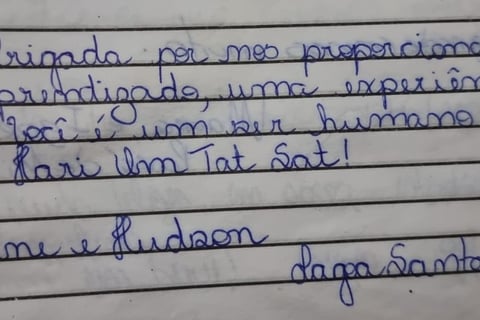 rigada por nos proporciona
prendizado, uma experiên
Você é um ser humano
Hari Om Tat Sat!
ne e Hudson
Lagoa Santa